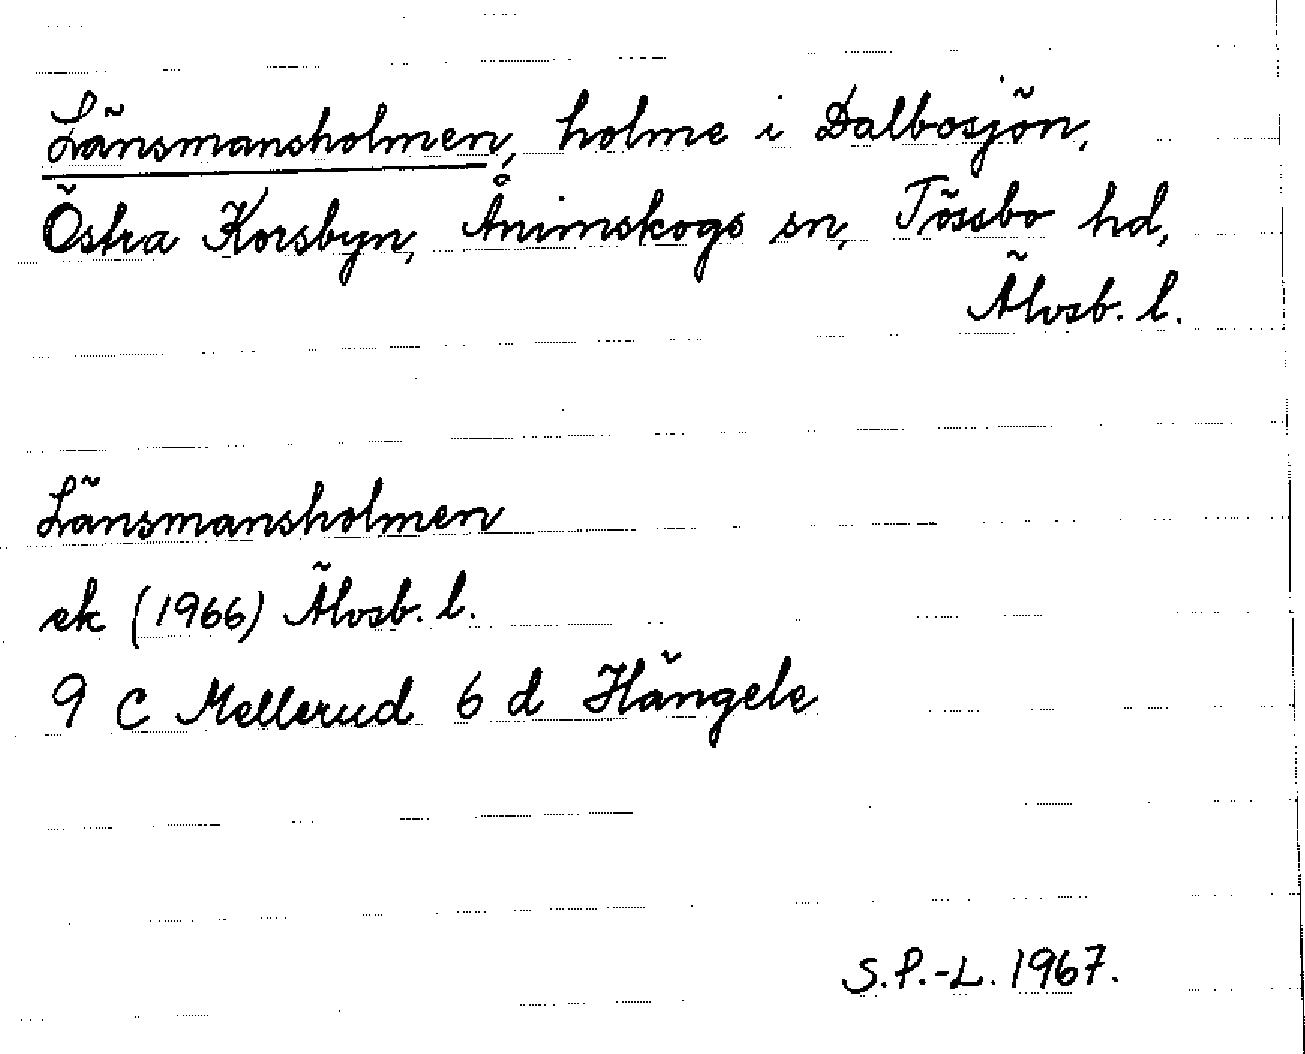 Länsmansholmen, holme i Dalbosjön,
Östra Korsbyn, Ånimskogs sn, Tössbo hd,
Älvsb. l.
Länsmansholmen
ek (1966) Älvsb. l.
9 C Mellerud 6 d Hängele
S.P.-L. 1967.